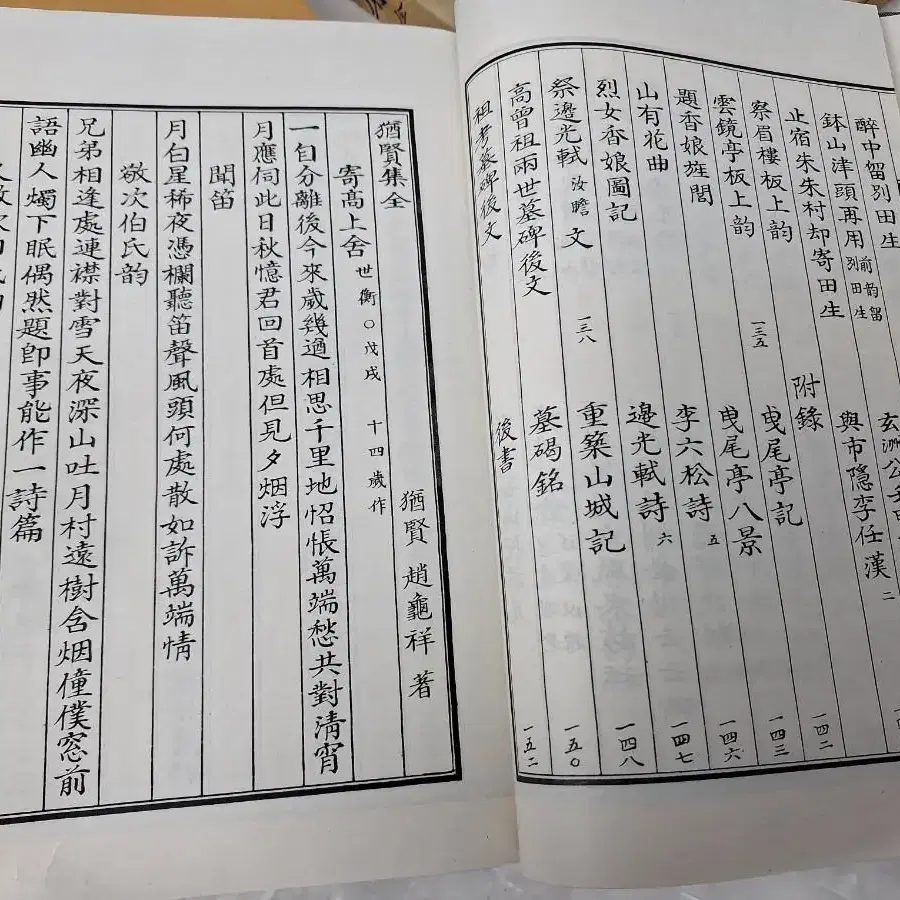 醉中留別田生
鉢山津頭再用前韵留別田生
止宿朱朱村却寄田生
祭眉樓板上韵 一三五
雲鏡亭板上韵
題香娘旌閭
山有花曲
烈女香娘圖記
祭邊光軾汝瞻文 一三八
高曾祖兩世墓碑後文
祖考墓碑後文
與市隱李任漢 二
附錄 一四二
曳尾亭記 一四三
曳尾亭八景 一四六
李六松詩 五 一四七
邊光軾詩 六 一四八
重築山城記 一五〇
墓碣銘 一五二
後書
猶賢集全
猶賢 趙龜祥 著
寄高上舍 世衡〇戊戌 十四歲作
一自分離後今來歲幾遒相思千里地怊悵萬端愁共對淸宵
月應伺此日秋憶君回首處但見夕烟浮
聞笛
月白星稀夜憑欄聽笛聲風頭何處散如訴萬端情
敬次伯氏韵
兄弟相逢處連襟對雪天夜深山吐月村遠樹含烟僮僕窓前
語幽人燭下眠偶然題卽事能作一詩篇